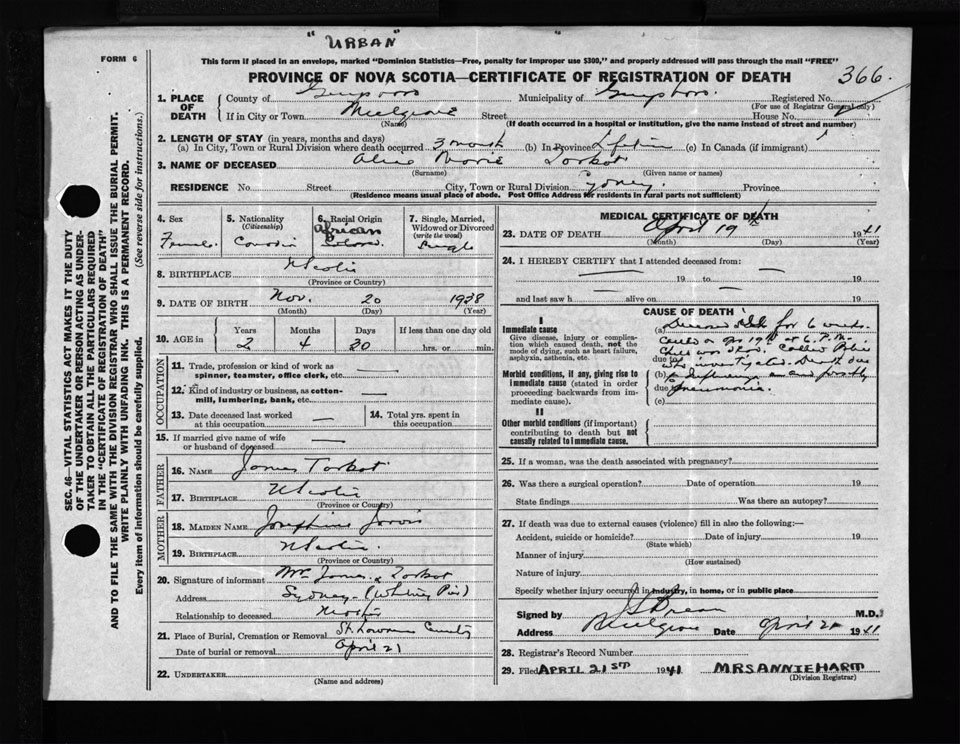 "URBAN"
FORM 6
This form if placed in an envelope, marked "Dominion Statistics—Free, penalty for improper use $300," and properly addressed will pass through the mail "FREE"
PROVINCE OF NOVA SCOTIA—CERTIFICATE OF REGISTRATION OF DEATH
366
1. PLACE OF DEATH
County of Guysboro Municipality of Guysboro Registered No.
(For use of Registrar General only)
If in City or Town Mulgrave Street House No.
(Name) (If death occurred in a hospital or institution, give the name instead of street and number)
2. LENGTH OF STAY (in years, months and days)
(a) In City, Town or Rural Division where death occurred 3 month (b) In Province Lifetime (c) In Canada (if immigrant)
3. NAME OF DECEASED Alice Marie Torbot
(Surname) (Given name or names)
RESIDENCE No. Street City, Town or Rural Division Sydney Province
(Residence means usual place of abode. Post Office Address for residents in rural parts not sufficient)
4. Sex
Female
5. Nationality
(Citizenship)
6. Racial Origin
African
Colored
7. Single, Married, Widowed or Divorced
(write the word)
Single
8. BIRTHPLACE N Scotia
(Province or Country)
9. DATE OF BIRTH Nov. 20 1938
(Month) (Day) (Year)
10. AGE in
Years Months Days If less than one day old
2 4 30 hrs. or min.
OCCUPATION
11. Trade, profession or kind of work as spinner, teamster, office clerk, etc. —
12. Kind of industry or business, as cotton-mill, lumbering, bank, etc. —
13. Date deceased last worked at this occupation —
14. Total yrs. spent in this occupation
15. If married give name of wife or husband of deceased —
FATHER
16. NAME James Torbot
17. BIRTHPLACE N Scotia
(Province or Country)
MOTHER
18. MAIDEN NAME Josephine Jarvis
19. BIRTHPLACE N Scotia.
(Province or Country)
20. Signature of informant Mrs James Torbot
Address Sydney (Whitney Pier)
Relationship to deceased Mother
21. Place of Burial, Cremation or Removal St Lawrence Cemetery
Date of burial or removal April 21
22. UNDERTAKER
(Name and address)
MEDICAL CERTIFICATE OF DEATH
23. DATE OF DEATH April 19th 1941
(Month) (Day) (Year)
24. I HEREBY CERTIFY that I attended deceased from:
— 19 to — 19
and last saw h — alive on — 19
CAUSE OF DEATH
I
Immediate cause
Give disease, injury or complication which caused death, not the mode of dying, such as heart failure, asphyxia, asthenia, etc.
Morbid conditions, if any, giving rise to immediate cause (stated in order proceeding backwards from immediate cause).
II
Other morbid conditions (if important) contributing to death but not causally related to immediate cause.
(a) Deceased sick for 6 weeks.
Called on Apr 19th at 6. P.M.
Child was dead. Called Police
due to who investigated. Death due
(b) to Influenza and possibly
due to pneumonia.
(c)
25. If a woman, was the death associated with pregnancy?
26. Was there a surgical operation? Date of operation 19
State findings Was there an autopsy?
27. If death was due to external causes (violence) fill in also the following:—
Accident, suicide or homicide? Date of injury 19
(State which)
Manner of injury
(How sustained)
Nature of injury
Specify whether injury occurred in industry, in home, or in public place
Signed by M.D.
Address Mulgrave Date April 21 1941
28. Registrar's Record Number
29. Filed APRIL 21ST 1941 MRS ANNIE HARM
(Division Registrar)
SEC. 46—VITAL STATISTICS ACT MAKES IT THE DUTY
OF THE UNDERTAKER OR PERSON ACTING AS UNDER-
TAKER TO OBTAIN ALL THE PARTICULARS REQUIRED
IN THE "CERTIFICATE OF REGISTRATION OF DEATH"
AND TO FILE THE SAME WITH THE DIVISION REGISTRAR WHO SHALL ISSUE THE BURIAL PERMIT.
WRITE PLAINLY WITH UNFADING INK. THIS IS A PERMANENT RECORD.
Every item of information should be carefully supplied. (See reverse side for instructions.)